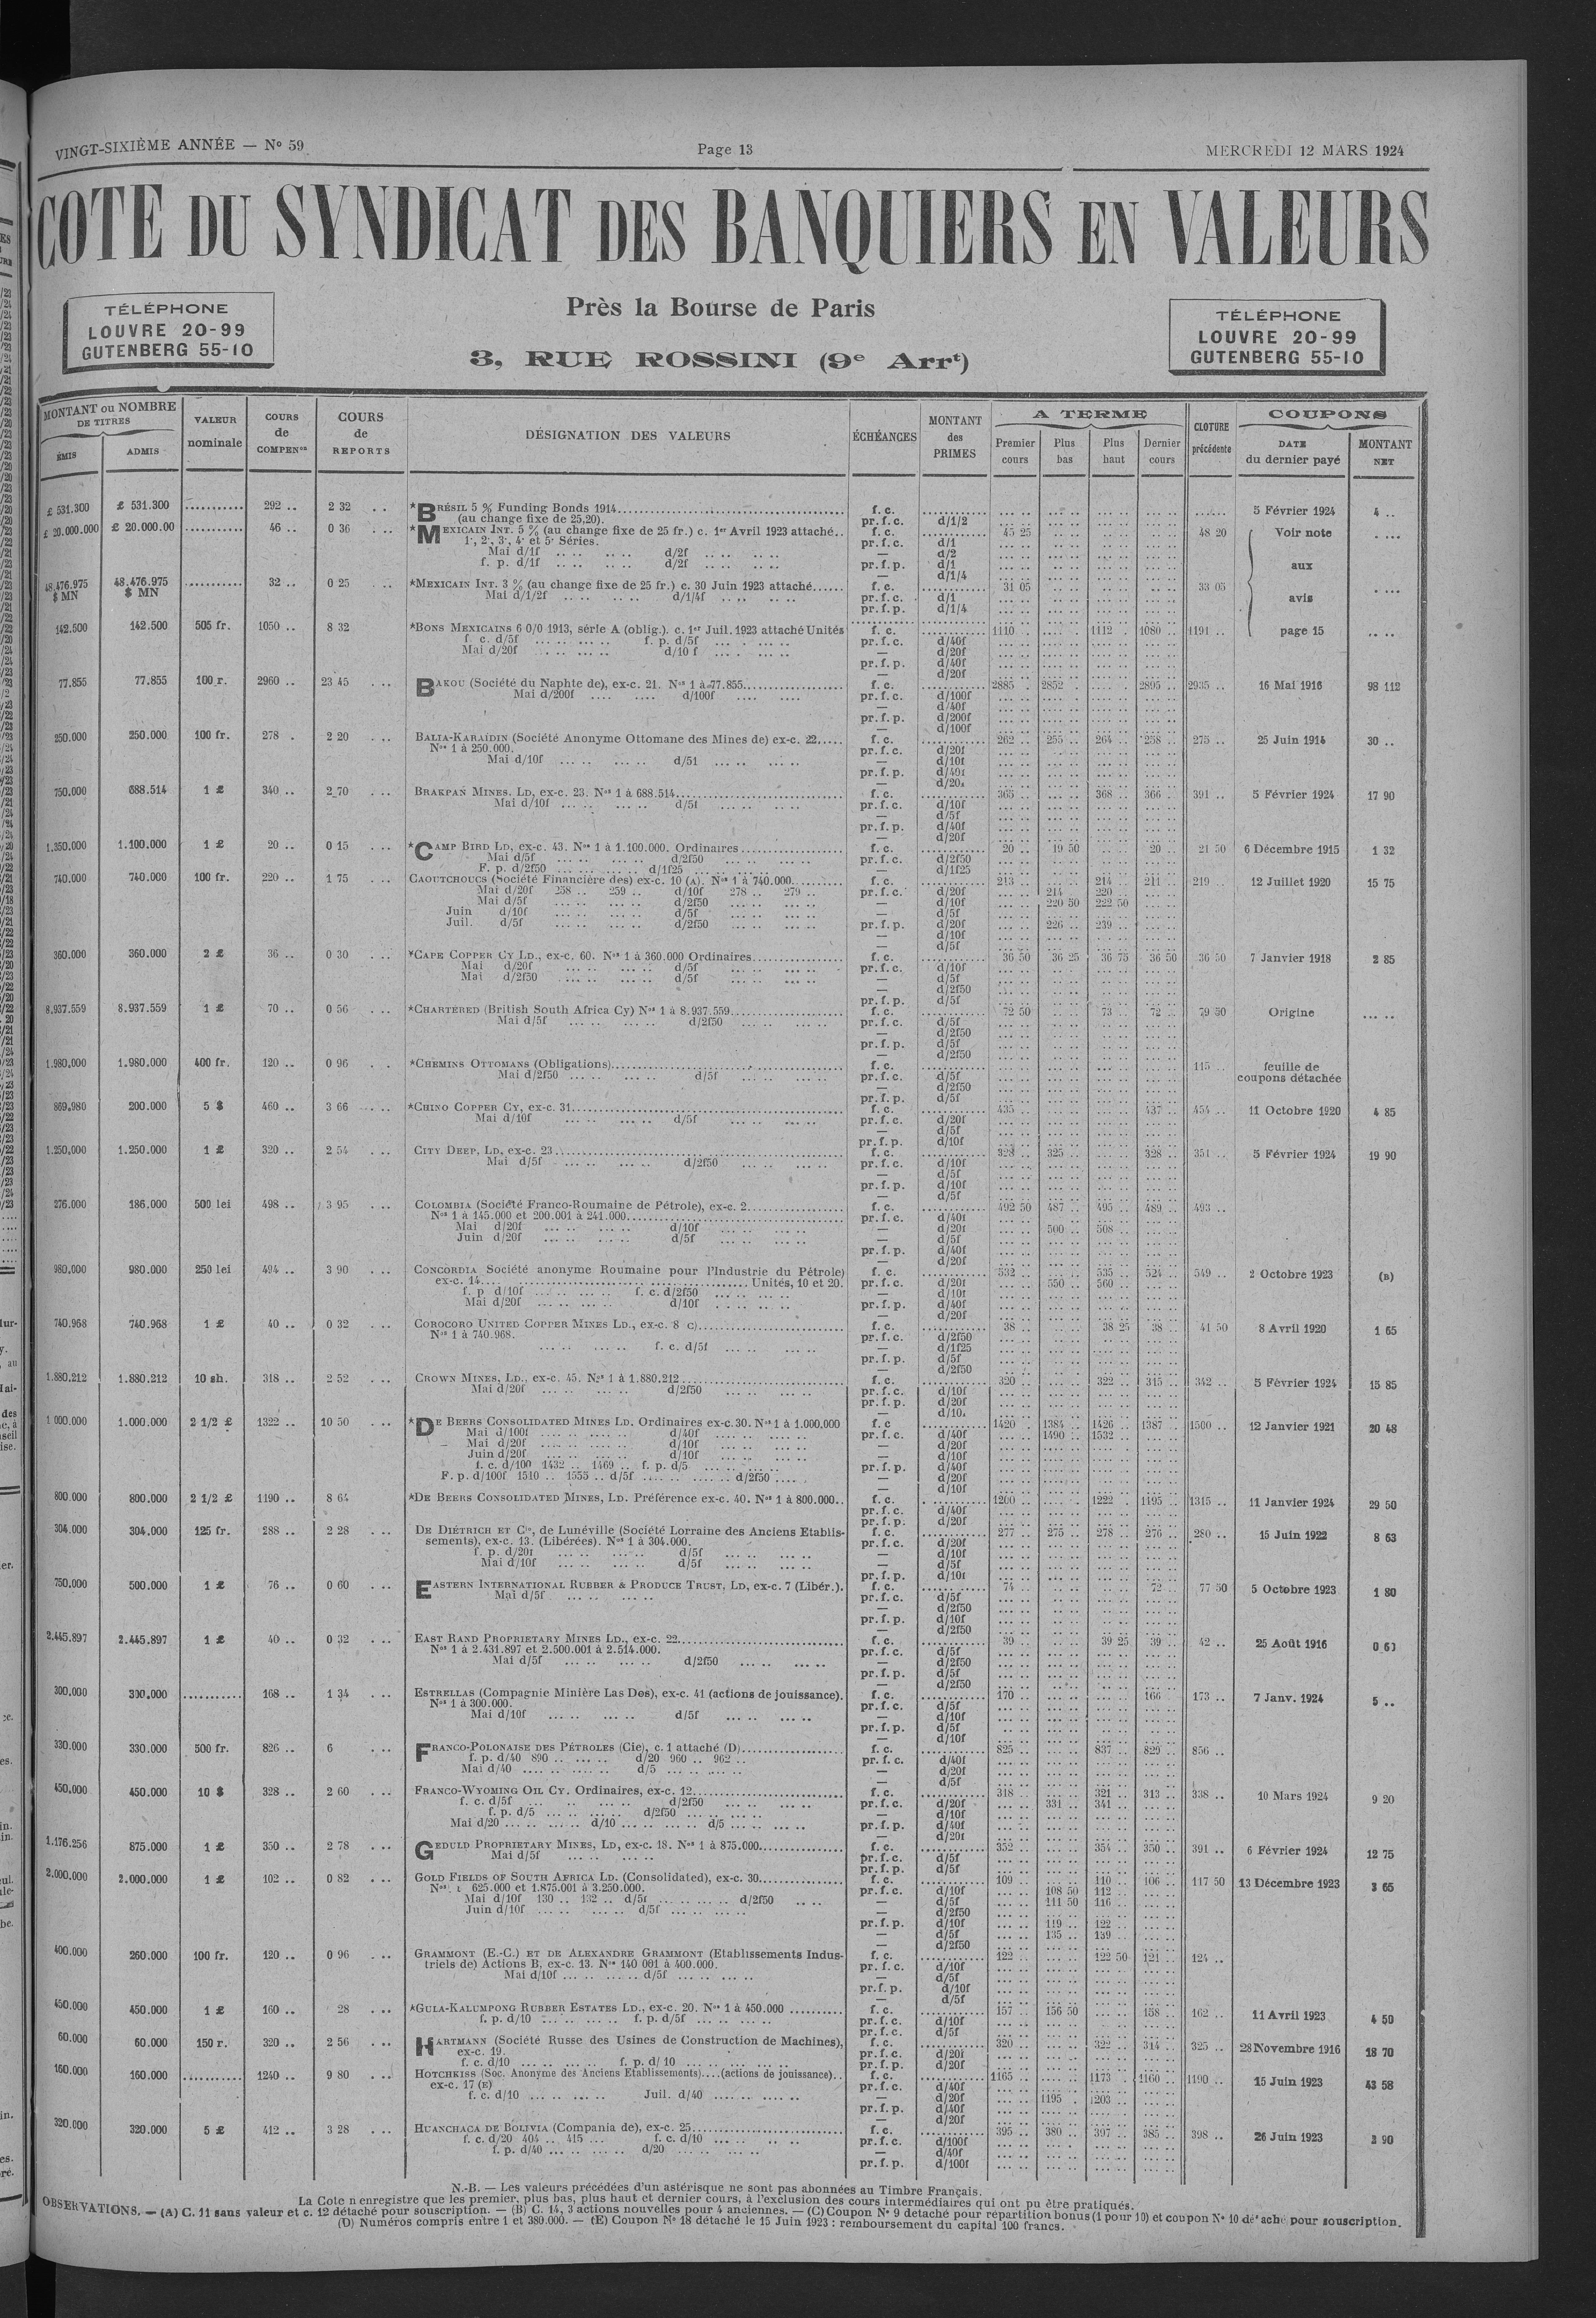 VINGT-SIXIÈME ANNÉE — No 59
Page 13
MERCREDI 12 MARS 1924
COTE DU SYNDICAT DES BANQUIERS EN VALEURS
TÉLÉPHONE
LOUVRE 20-99
GUTENBERG 55-10
Près la Bourse de Paris
3, RUE ROSSINI (9e Arrt)
TÉLÉPHONE
LOUVRE 20-99
GUTENBERG 55-10
MONTANT ou NOMBRE DE TITRES
ÉMIS ADMIS
VALEUR nominale
COURS de COMPENon
COURS de REPORTS
DÉSIGNATION DES VALEURS
ÉCHÉANCES
MONTANT des PRIMES
A TERME
Premier cours Plus bas Plus haut Dernier cours
CLOTURE précédente
COUPONS
DATE du dernier payé MONTANT NET
£ 531.300 £ 531.300 292 .. 2 32 *BRÉSIL 5 % Funding Bonds 1914 f. c. 5 Février 1924 4 ..
(au change fixe de 25,20). pr. f. c. d/1/2
£ 20.000.000 £ 20.000.00 46 .. 0 36 *MEXICAIN INT. 5 % (au change fixe de 25 fr.) c. 1er Avril 1923 attaché.. f. c. 45 25 48 20 Voir note
1e, 2e, 3e, 4e et 5e Séries. pr. f. c. d/1
Mai d/1f d/2f — d/2
f. p. d/1f d/2f pr. f. p. d/1
— d/1/4
aux
48.476.975 $ MN 48.476.975 $ MN 32 .. 0 25 *MEXICAIN INT. 3 % (au change fixe de 25 fr.) c. 30 Juin 1923 attaché f. c. 31 05 33 05
Mai d/1/2f d/1/4f pr. f. c. d/1 avis
pr. f. p. d/1/4
142.500 142.500 505 fr. 1050 .. 8 32 *BONS MEXICAINS 6 0/0 1913, série A (oblig.). c. 1er Juil. 1923 attaché Unités f. c. 1110 1112 1080 1191 .. page 15
f. c. d/5f f. p. d/5f pr. f. c. d/40f
Mai d/20f d/10 f — d/20f
pr. f. p. d/40f
— d/20f
77.855 77.855 100 r. 2960 .. 23 45 BAKOU (Société du Naphte de), ex-c. 21. Nos 1 à 77.855 f. c. 2885 2852 2895 2935 .. 16 Mai 1916 98 112
Mai d/200f d/100f pr. f. c. d/100f
— d/40f
pr. f. p. d/200f
— d/100f
250.000 250.000 100 fr. 278 . 2 20 BALIA-KARAÏDIN (Société Anonyme Ottomane des Mines de) ex-c. 22 f. c. 262 255 264 258 275 .. 25 Juin 1914 30 ..
Nos 1 à 250.000. pr. f. c. d/20f
Mai d/10f d/5f — d/10f
pr. f. p. d/40f
— d/20f
750.000 688.514 1 £ 340 .. 2 70 BRAKPAN MINES, LD, ex-c. 23. Nos 1 à 688.514 f. c. 365 368 366 391 .. 5 Février 1924 17 90
Mai d/10f d/5f pr. f. c. d/10f
— d/5f
pr. f. p. d/40f
— d/20f
1.350.000 1.100.000 1 £ 20 .. 0 15 *CAMP BIRD LD, ex-c. 43. Nos 1 à 1.100.000. Ordinaires f. c. 20 19 50 20 21 50 6 Décembre 1915 1 32
Mai d/5f d/2f50 pr. f. c. d/2f50
F. p. d/2f50 d/1f25 — d/1f25
740.000 740.000 100 fr. 220 .. 1 75 CAOUTCHOUCS (Société Financière des) ex-c. 10 (A). Nos 1 à 740.000 f. c. 213 214 211 219 .. 12 Juillet 1920 15 75
Mai d/20f 258 .. 259 .. d/10f 278 .. 279 .. pr. f. c. d/20f 214 220
Mai d/5f d/2f50 — d/10f 220 50 222 50
Juin d/10f d/5f — d/5f
Juil. d/5f d/2f50 pr. f. p. d/20f 226 239
— d/10f
— d/5f
360.000 360.000 2 £ 36 .. 0 30 *CAPE COPPER CY LD., ex-c. 60. Nos 1 à 360.000 Ordinaires f. c. 36 50 36 25 36 75 36 50 36 50 7 Janvier 1918 2 85
Mai d/20f d/5f pr. f. c. d/10f
Mai d/2f50 d/5f — d/5f
— d/2f50
pr. f. p. d/5f
8.937.559 8.937.559 1 £ 70 .. 0 56 *CHARTERED (British South Africa Cy) Nos 1 à 8.937.559 f. c. 72 50 73 72 79 50 Origine
Mai d/5f d/2f50 pr. f. c. d/5f
— d/2f50
pr. f. p. d/5f
— d/2f50
1.980.000 1.980.000 400 fr. 120 .. 0 96 *CHEMINS OTTOMANS (Obligations) f. c. 115 feuille de coupons détachée
Mai d/2f50 d/5f pr. f. c. d/5f
— d/2f50
pr. f. p. d/5f
869.980 200.000 5 $ 460 .. 3 66 *CHINO COPPER CY, ex-c. 31 f. c. 435 437 454 .. 11 Octobre 1920 4 85
Mai d/10f d/5f pr. f. c. d/20f
— d/5f
pr. f. p. d/10f
1.250.000 1.250.000 1 £ 320 .. 2 54 CITY DEEP, LD, ex-c. 23 f. c. 328 325 328 351 .. 5 Février 1924 19 90
Mai d/5f d/2f50 pr. f. c. d/10f
— d/5f
pr. f. p. d/10f
— d/5f
276.000 186.000 500 lei 498 .. 3 95 COLOMBIA (Société Franco-Roumaine de Pétrole), ex-c. 2 f. c. 492 50 487 495 489 493 ..
Nos 1 à 145.000 et 200.001 à 241.000 pr. f. c. d/40f
Mai d/20f d/10f — d/20f 500 508
Juin d/20f d/5f — d/5f
pr. f. p. d/40f
— d/20f
980.000 980.000 250 lei 494 .. 3 90 CONCORDIA Société anonyme Roumaine pour l'Industrie du Pétrole) f. c. 532 535 524 549 .. 2 Octobre 1923 (B)
ex-c. 14 Unités, 10 et 20. pr. f. c. d/20f 550 560
f. p d/10f f. c. d/2f50 — d/10f
Mai d/20f d/10f pr. f. p. d/40f
— d/20f
740.968 740.968 1 £ 40 .. 0 32 COROCORO UNITED COPPER MINES LD., ex-c. 8 C) f. c. 38 38 25 38 41 50 8 Avril 1920 1 65
Nos 1 à 740.968. pr. f. c. d/2f50
f. c. d/5f — d/1f25
pr. f. p. d/5f
— d/2f50
1.880.212 1.880.212 10 sh. 318 .. 2 52 CROWN MINES, LD., ex-c. 45. Nos 1 à 1.880.212 f. c. 320 322 315 342 .. 5 Février 1924 15 85
Mai d/20f d/2f50 pr. f. c. d/10f
pr. f. p. d/20f
— d/10f
1 000.000 1.000.000 2 1/2 £ 1322 .. 10 50 *DE BEERS CONSOLIDATED MINES LD. Ordinaires ex-c. 30. Nos 1 à 1.000.000 f. c 1420 1384 1426 1387 1500 .. 12 Janvier 1921 20 48
Mai d/100f d/40f pr. f. c. d/40f 1490 1532
Mai d/20f d/10f — d/20f
Juin d/20f d/10f — d/10f
f. c. d/100 1432 .. 1469 .. f. p. d/5 pr. f. p. d/40f
F. p. d/100f 1510 .. 1555 .. d/5f d/2f50 — d/20f
— d/10f
800.000 800.000 2 1/2 £ 1190 .. 8 64 *DE BEERS CONSOLIDATED MINES, LD. Préférence ex-c. 40. Nos 1 à 800.000.. f. c. 1200 1222 1195 1315 .. 11 Janvier 1924 29 50
pr. f. c. d/40f
pr. f. p. d/20f
304.000 304.000 125 fr. 288 .. 2 28 DE DIÉTRICH ET Cie, de Lunéville (Société Lorraine des Anciens Etablis- f. c. 277 275 278 276 280 .. 15 Juin 1922 8 63
sements), ex-c. 13. (Libérées). Nos 1 à 304.000. pr. f. c. d/20f
f. p. d/20f d/5f — d/10f
Mai d/10f d/5f — d/5f
pr. f. p. d/10f
750.000 500.000 1 £ 76 .. 0 60 EASTERN INTERNATIONAL RUBBER & PRODUCE TRUST, LD, ex-c. 7 (Libér.). f. c. 74 72 77 50 5 Octobre 1923 1 80
Mai d/5f pr. f. c. d/5f
— d/2f50
pr. f. p. d/10f
— d/2f50
2.445.897 2.445.897 1 £ 40 .. 0 32 EAST RAND PROPRIETARY MINES LD., ex-c. 22 f. c. 39 39 25 39 42 .. 25 Août 1916
Nos 1 à 2.431.897 et 2.500.001 à 2.514.000. pr. f. c. d/5f
Mai d/5f d/2f50 — d/2f50
pr. f. p. d/5f
— d/2f50
300.000 300.000 168 .. 1 34 ESTRELLAS (Compagnie Minière Las Dos), ex-c. 41 (actions de jouissance). f. c. 170 166 173 .. 7 Janv. 1924 5 ..
Nos 1 à 300.000. pr. f. c. d/5f
Mai d/10f d/5f — d/10f
pr. f. p. d/5f
— d/10f
330.000 330.000 500 fr. 826 .. 6 FRANCO-POLONAISE DES PÉTROLES (Cie), c. 1 attaché (D) f. c. 825 837 829 856 ..
f. p. d/40 890 .. d/20 960 .. 962 .. pr. f. c. d/40f
Mai d/40 d/5 — d/20f
— d/5f
450.000 450.000 10 $ 328 .. 2 60 FRANCO-WYOMING OIL CY. Ordinaires, ex-c. 12 f. c. 318 321 313 338 .. 10 Mars 1924 9 20
f. c. d/5f d/2f50 pr. f. c. d/20f 331 341
f. p. d/5 d/2f50 — d/10f
Mai d/20 d/10 d/5 pr. f. p. d/40f
— d/20f
1.176.256 875.000 1 £ 350 .. 2 78 GEDULD PROPRIETARY MINES, LD, ex-c. 18. Nos 1 à 875.000 f. c. 352 354 350 391 .. 6 Février 1924 12 75
Mai d/5f pr. f. c. d/5f
pr. f. p. d/5f
2.000.000 2.000.000 1 £ 102 .. 0 82 GOLD FIELDS OF SOUTH AFRICA LD. (Consolidated), ex-c. 30 f. c. 109 110 106 117 50 13 Décembre 1923 3 65
Nos 1 625.000 et 1.875.001 à 3.250.000. pr. f. c. d/10f 108 50 112
Mai d/10f 130 .. 132 .. d/5f d/2f50 — d/5f 111 50 116
Juin d/10f d/5f — d/2f50
pr. f. p. d/10f 119 122
— d/5f 135 139
— d/2f50
400.000 260.000 100 fr. 120 .. 0 96 GRAMMONT (E.-C.) ET DE ALEXANDRE GRAMMONT (Etablissements Indus- f. c. 122 122 50 121 124 ..
triels de) Actions B, ex-c. 13. Nos 140 001 à 400.000. pr. f. c. d/10f
Mai d/10f d/5f — d/5f
pr. f. p. d/10f
— d/5f
450.000 450.000 1 £ 160 .. 28 *GULA-KALUMPONG RUBBER ESTATES LD., ex-c. 20. Nos 1 à 450.000 f. c. 157 156 50 158 162 .. 11 Avril 1923 4 50
f. p. d/10 f. p. d/5f pr. f. c. d/10f
pr. f. c. d/5f
60.000 60.000 150 r. 320 .. 2 56 HARTMANN (Société Russe des Usines de Construction de Machines), f. c. 320 322 314 325 .. 28 Novembre 1916 18 70
ex-c. 19. pr. f. c. d/20f
f. c. d/10 f. p. d/ 10 pr. f. p. d/20f
160.000 160.000 1240 .. 9 80 HOTCHKISS (Soc. Anonyme des Anciens Etablissements)....(actions de jouissance).. f. c. 1165 1173 1160 1190 .. 15 Juin 1923 43 58
ex-c. 17 (E) pr. f. c. d/40f
f. c. d/10 Juil. d/40 — d/20f 1195 1203
pr. f. p. d/40f
— d/20f
320.000 320.000 5 £ 412 .. 3 28 HUANCHACA DE BOLIVIA (Compania de), ex-c. 25 f. c. 395 380 397 385 398 .. 26 Juin 1923 3 90
f. c. d/20 404 .. 415 f. c. d/10 pr. f. c. d/100f
f. p. d/40 d/20 — d/40f
pr. f. p. d/100f
N.-B. — Les valeurs précédées d'un astérisque ne sont pas abonnées au Timbre Français.
La Cote n enregistre que les premier, plus bas, plus haut et dernier cours, à l'exclusion des cours intermédiaires qui ont pu être pratiqués.
OBSERVATIONS. — (A) C. 11 sans valeur et c. 12 détaché pour souscription. — (B) C. 14, 3 actions nouvelles pour 4 anciennes. — (C) Coupon No 9 détaché pour répartition bonus (1 pour 10) et coupon No 10 détaché pour souscription.
(D) Numéros compris entre 1 et 380.000. — (E) Coupon No 18 détaché le 15 Juin 1923 : remboursement du capital 100 francs.